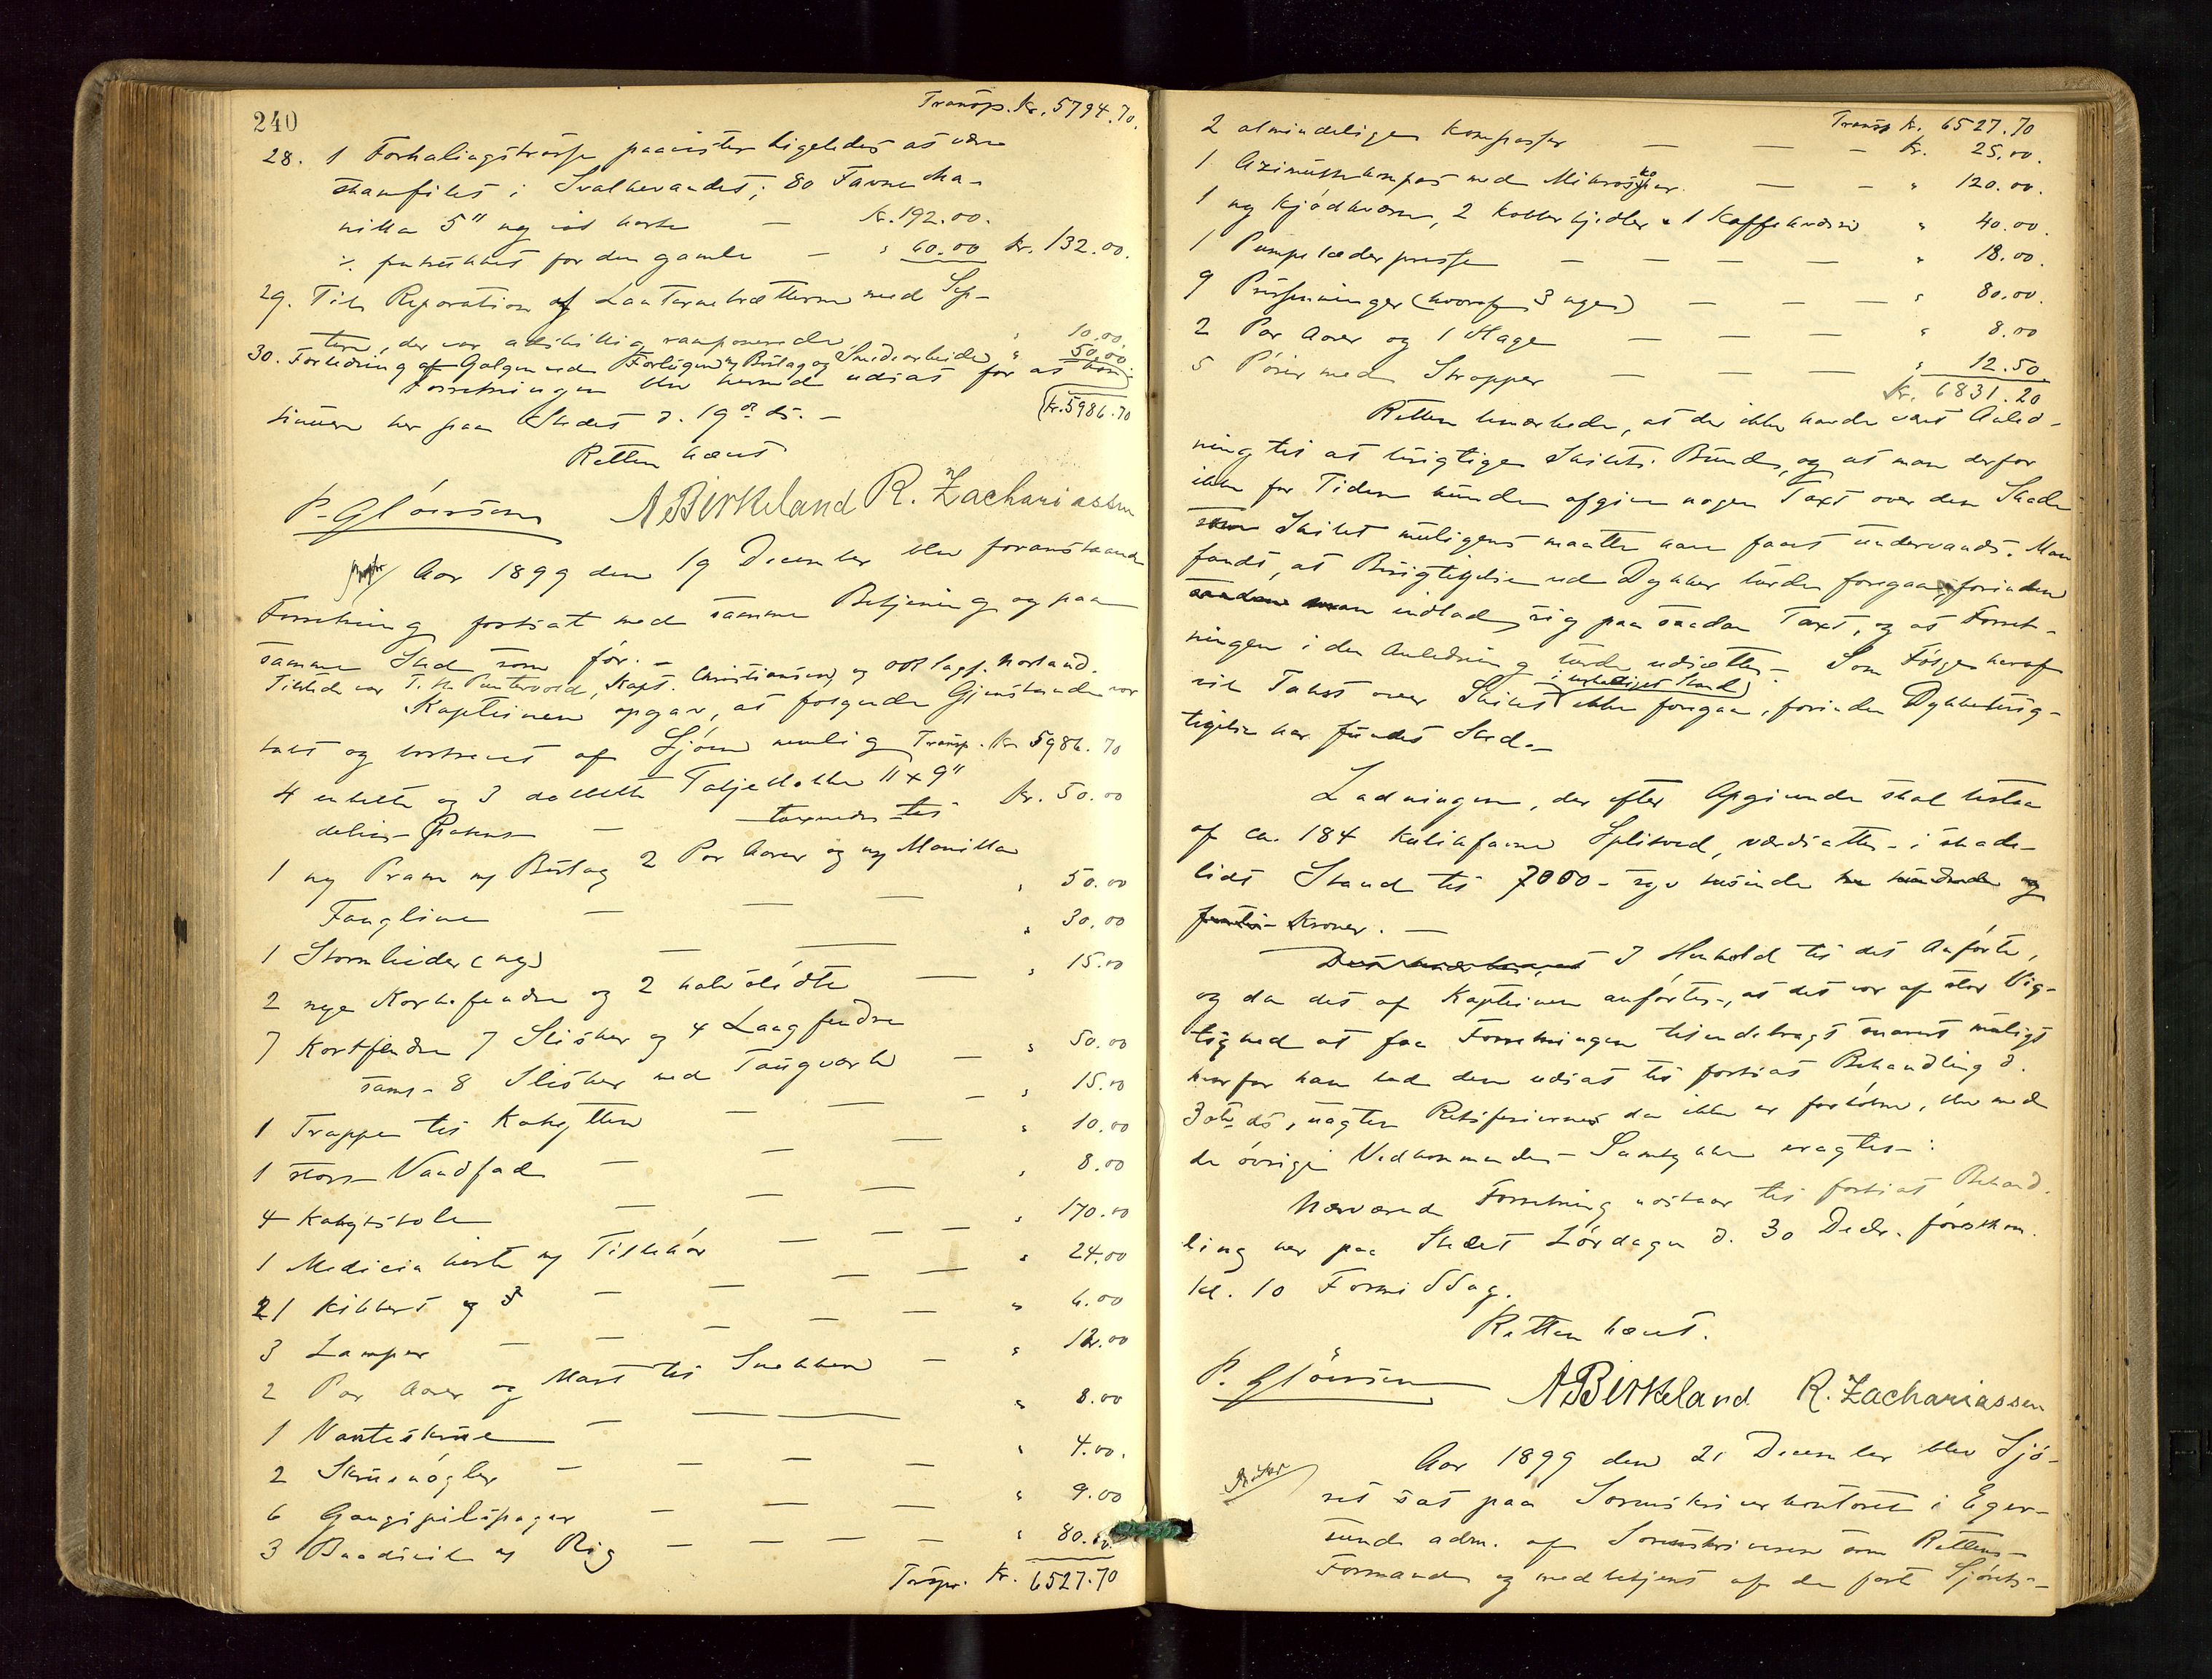 240
Transp. Kr. 5794.70.
28. 1 Forhalingstrosse paavistes ligeledes at være
skamfilet i Svalhevandet; 80 Favne Ma-
nilla 5" ny vil koste — Kr. 192.00.
÷ for den gamle — " 60.00 Kr. 132.00.
29. Til Reparation af Lanternebrætterne med
der var ramponerede " 10.00.
30. Forbedring af Galgen med Beslag og Smedearbeide " 50.00
Forretningen blev herved udsat for at kon-
Kr. 5986.70
tinuere her paa Stedet d. 19de ds. —
Retten hævet
P. Gløersen A Birkeland R. Zachariassen
Aar 1899 den 19 December blev foranstaaende
Forretning fortsat med samme Betjening og paa
samme Sted som før. —
Tilstede var Kapt. Christiansen og Norland.
Kapteinen opgav, at følgende Gjenstande var
og bortrevet af Sjøen nemlig Transp. Kr. 5986.70
4 enkelte og 3 dobbelte Taljeblokke 11 x 9"
Kr. 50.00
1 ny Pram m/ Beslag 2 Par Aarer og ny Manilla
Fangline — — — " 50.00
1 Stormleider (ny) — — " 30.00
2 nye Korkefendre og 2 halvslidte — " 15.00
7 Kortfendre 7 Slisker og 4 Laagfendre
samt 8 Slisker med Taugværk — " 50.00
1 Trappe til Kahytten — — — " 15.00
1 stort Vandfad — — — " 10.00
4 Kahytstole — — — " 8.00
1 Medicinkiste m/ Tilbehør — — — " 170.00
21 — — — " 24.00
3 Lamper — — — " 6.00
2 Par Aarer og Mast til Snekken — " 12.00
1 Vanteskrue — — " 8.00
2 Skruenøgler — — — " 4.00.
6 Gangspilspager — — — " 9.00
3 Baadseil m/ Rig — — — — " 80.00.
Transp. Kr. 6527.70
Transp. Kr. 6527.70
2 almindelige Kompasser — — — Kr. 25.00.
1 Azimuthkompas med — — " 120.00.
1 ny Kjødkværn, 2 Kobberkjedler & 1 Kaffekværn " 40.00.
1 Pumpelæderpresse — — — — " 18.00.
9 Presenninger (hvoraf 3 nye) — — — " 80.00.
2 Par Aarer og 1 Hage — — — " 8.00
5 med Stropper — — — " 12.50
Kr. 6831.20
Retten bemærkede, at der ikke havde været Anled-
ning til at besigtige Skibets Bund, og at man derfor
ikke for Tiden kunde afgive nogen Taxt over den Skade
Skibet muligens maatte have faaet undervands. Man
fandt, at Besigtigelse ved Dykker burde foregaa, forinden
man indlod sig paa saadan Taxt, og at Forret-
ningen i den Anledning burde udsættes. Som Følge heraf
i ubeskadiget Stand
vil Takst over Skibet ikke foregaa, forinden Dykkerbesig-
tigelse har fundet Sted. —
Ladningen, der efter Opgivende skal bestaa
af ca. 184 Kubikfavne Splitved, værdsattes i skade-
lidt Stand til 7000 - syv tusinde
Kroner. —
I Henhold til det Anførte,
og da det af Kapteinen anførtes, at det var af stor Vig-
tighed at faa Forretningen tilendebragt snarest muligt
hvorfor han bad den udsat til fortsat Behandling d.
30te ds, uagtet Retsferierne da ikke er forløbne, blev med
de øvrige Vedkommendes Samtykke eragtet:
Nærværende Forretning udstaar til fortsat Behand-
ling her paa Stedet Lørdagen d. 30 Decbr. førstkom.
kl. 10 Formiddag.
Retten hævet.
P. Gløersen A Birkeland R. Zachariassen
Aar 1899 den 21 December blev Sjø-
ret sat paa Sorenskriverkontoret i Eger-
sund adm. af Sorenskriveren som Rettens
Formand og medbetjent af de faste Sjørets-